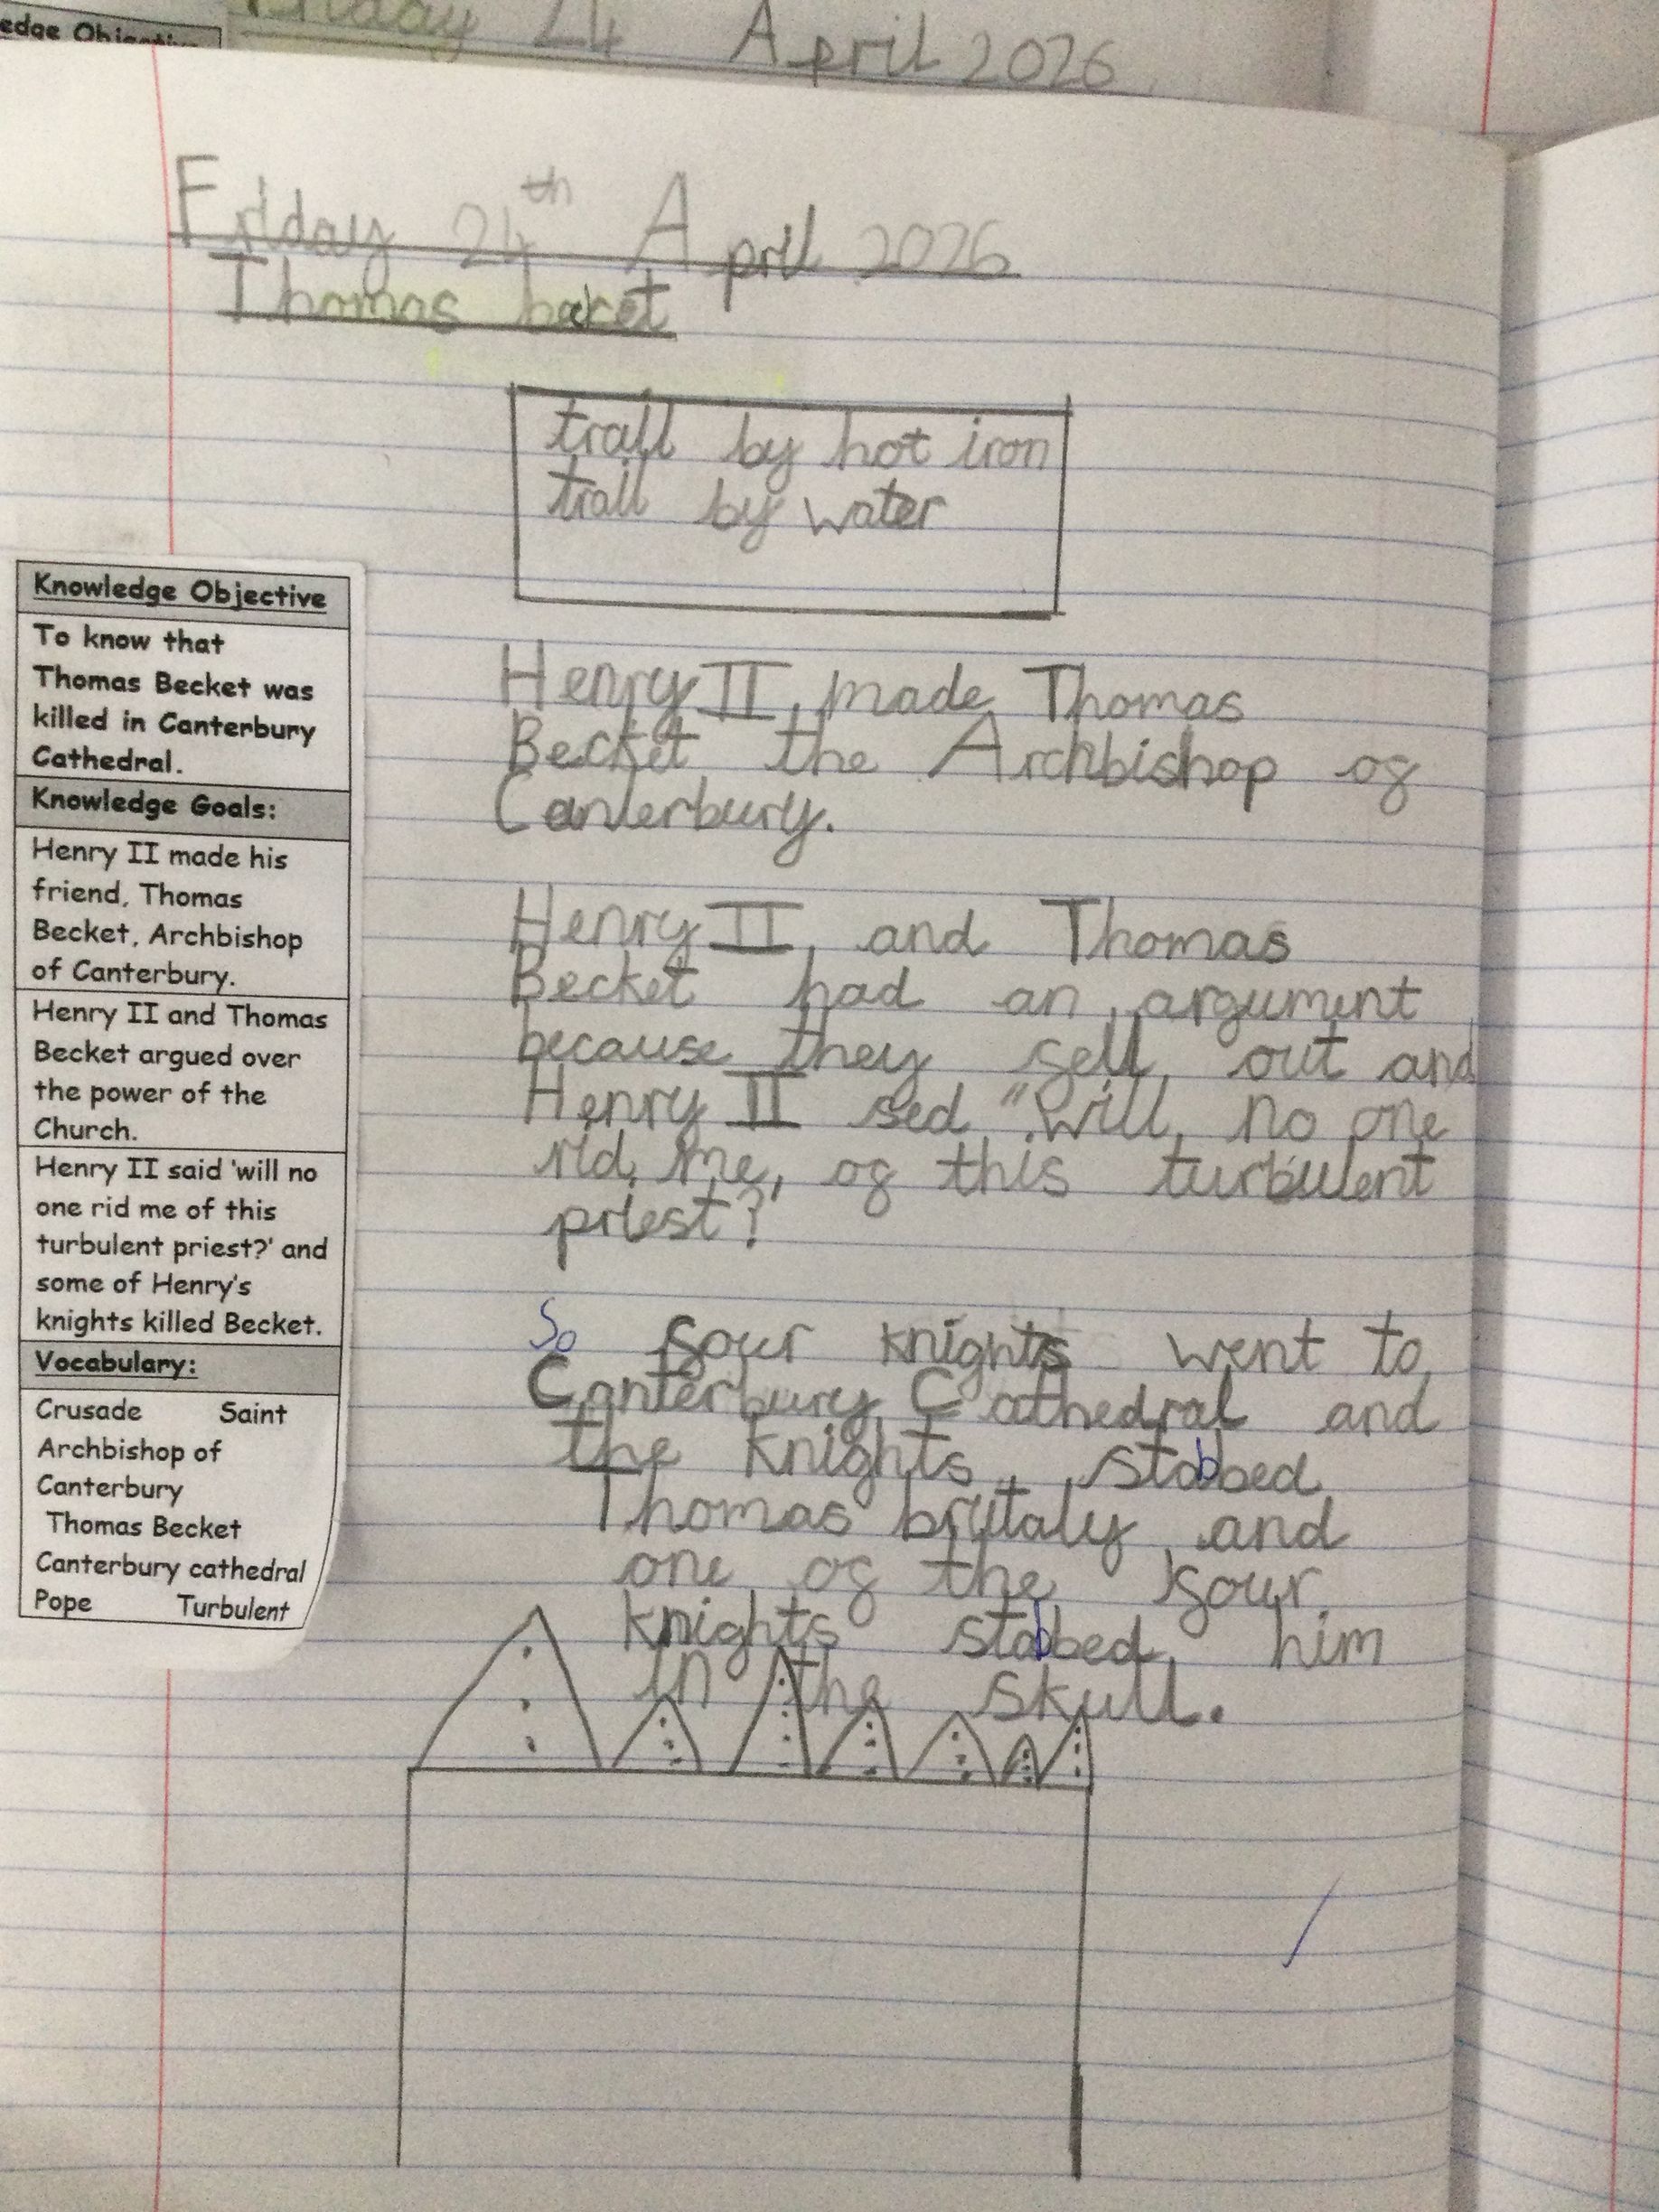 edge Objective
Friday 24 April 2026
Friday 24th April 2026
Thomas becket
trail by hot iron
trail by water
Knowledge Objective
To know that
Thomas Becket was
killed in Canterbury
Cathedral.
Knowledge Goals:
Henry II made his
friend, Thomas
Becket, Archbishop
of Canterbury.
Henry II and Thomas
Becket argued over
the power of the
Church.
Henry II said 'will no
one rid me of this
turbulent priest?' and
some of Henry's
knights killed Becket.
Vocabulary:
Crusade Saint
Archbishop of
Canterbury
Thomas Becket
Canterbury cathedral
Pope Turbulent
Henry II made Thomas
Becket the Archbishop of
Canterbury.
Henry II and Thomas
Becket had an argument
because they fell out and
Henry II sed "will no one
rid me, of this turbulent
priest?"
So four knights went to
Canterbury Cathedral and
the knights stabbed
Thomas brutaly and
one of the four
knights stabbed him
in the skull.